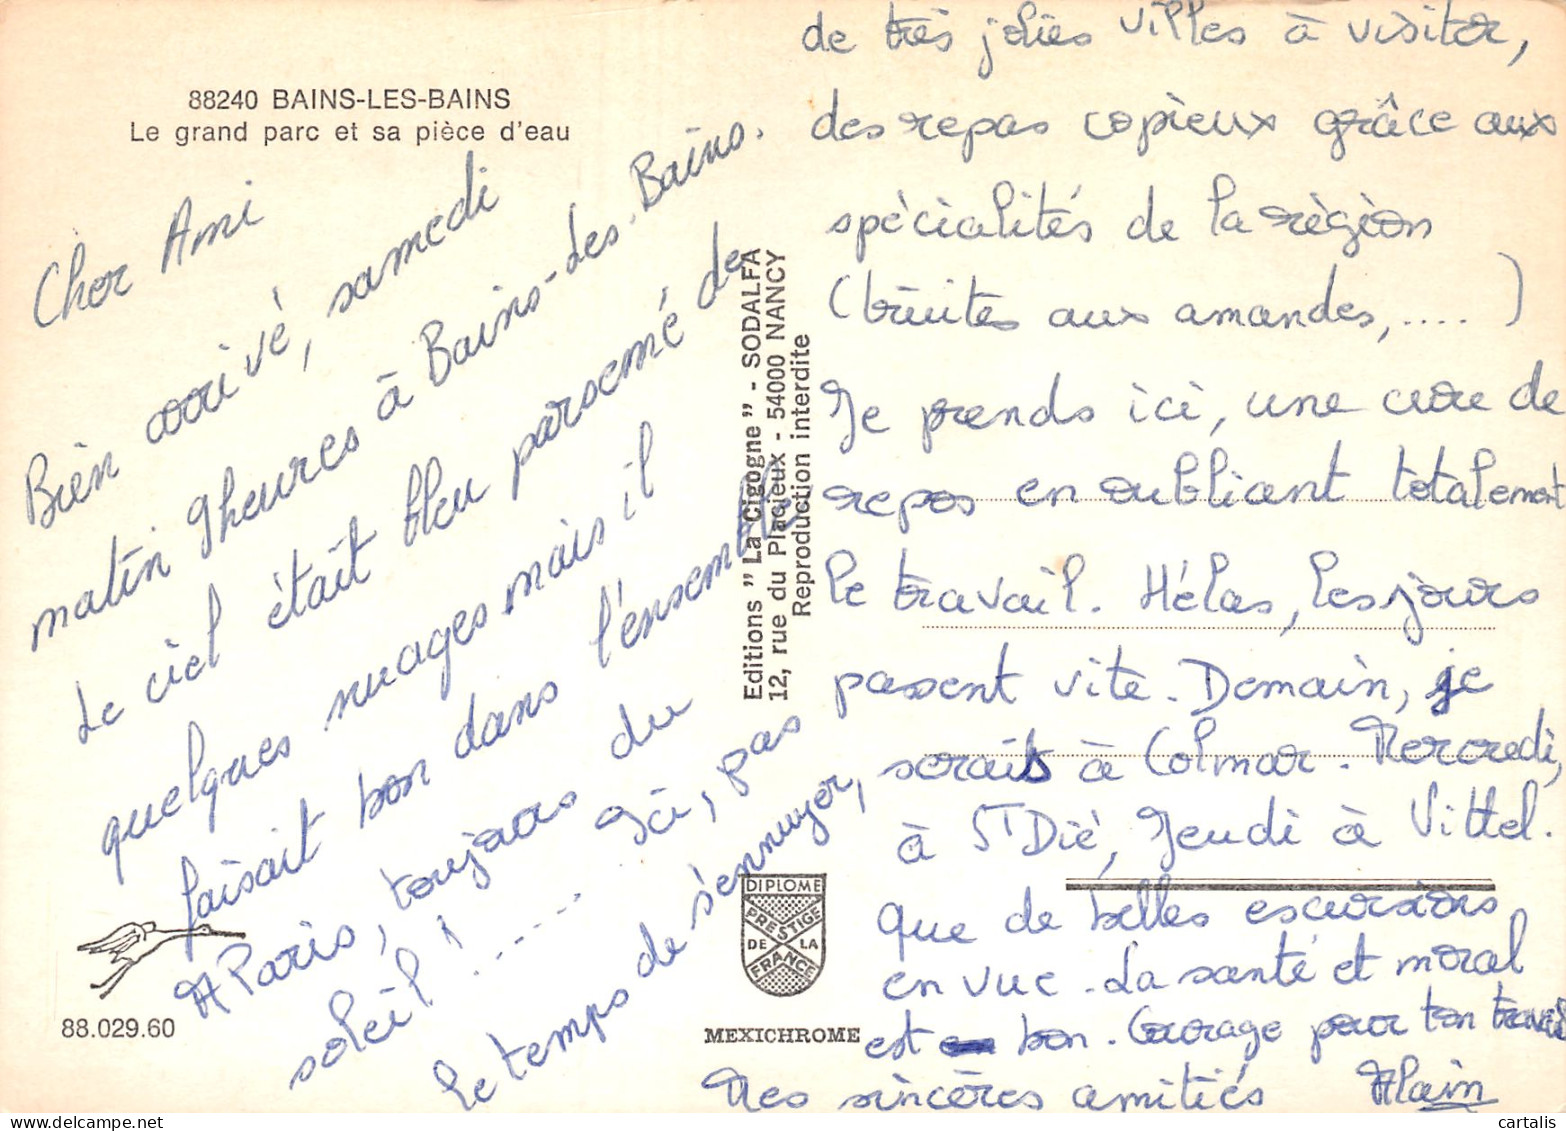 88240 BAINS-LES-BAINS
Le grand parc et sa pièce d'eau
Cher Ami
Bien arrivé, samedi
matin 9heures à Bains-Les-Bains.
Le ciel était bleu parsemé de
quelques nuages mais il
faisait bon dans l'ensemble
A Paris, toujours du
soleil !...... Ici, pas
le temps de s'ennuyer,
de très jolies villes à visiter,
des repas copieux grâce aux
spécialités de la région
(truites aux amandes,....)
Je prends ici, une cure de
repos en oubliant totalement
le travail. Hélas, les jours
passent vite. Demain, je
serais à Colmar. Mercredi,
à St Dié, Jeudi à Vittel.
que de belles escursions
en vue. La santé et moral
est bon. Courage pour ton travail
Mes sincères amitiés Alain
Editions "La Cigogne" - SODALFA
12, rue du Placieux - 54000 NANCY
Reproduction interdite
DIPLOME
PRESTIGE
DE LA
FRANCE
88.029.60
MEXICHROME
cartalis